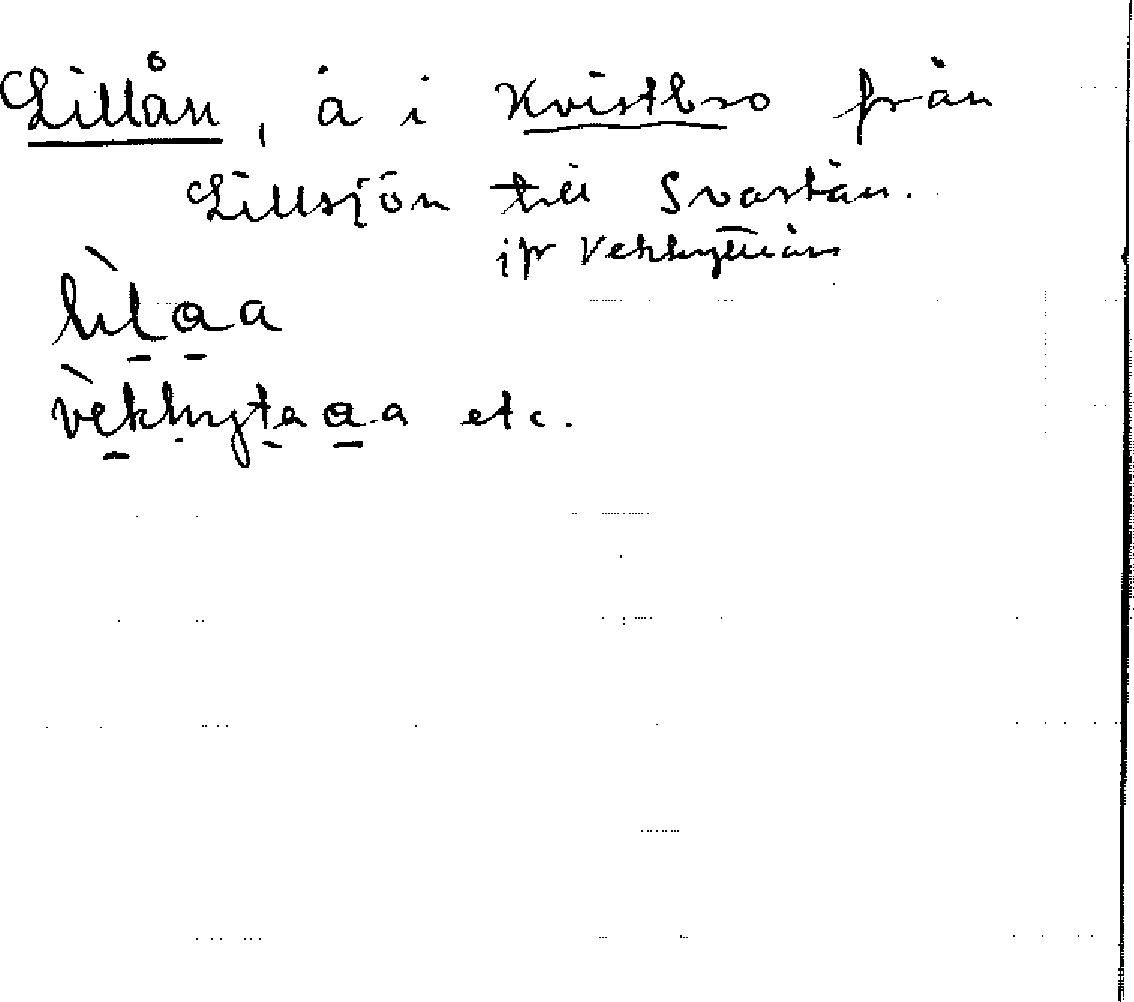 Lillån, å i Kvistbro från
Lillsjön till Svartån.
Vekhytteån
lìlaa
vèkhytaaa etc.